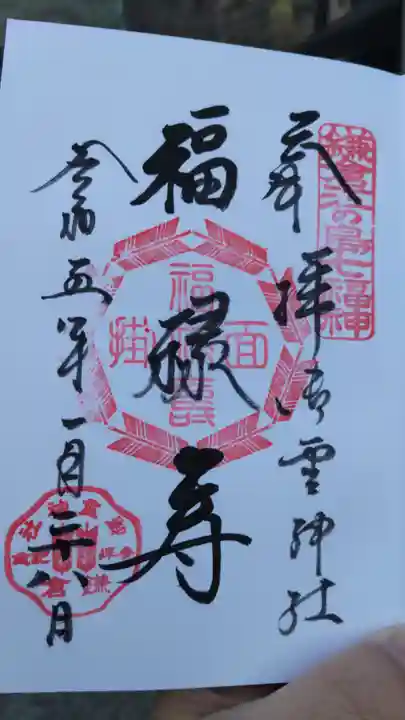 鎌倉江の島七福神
奉拝 御霊神社
福禄寿
面掛
令和五年一月二十八日